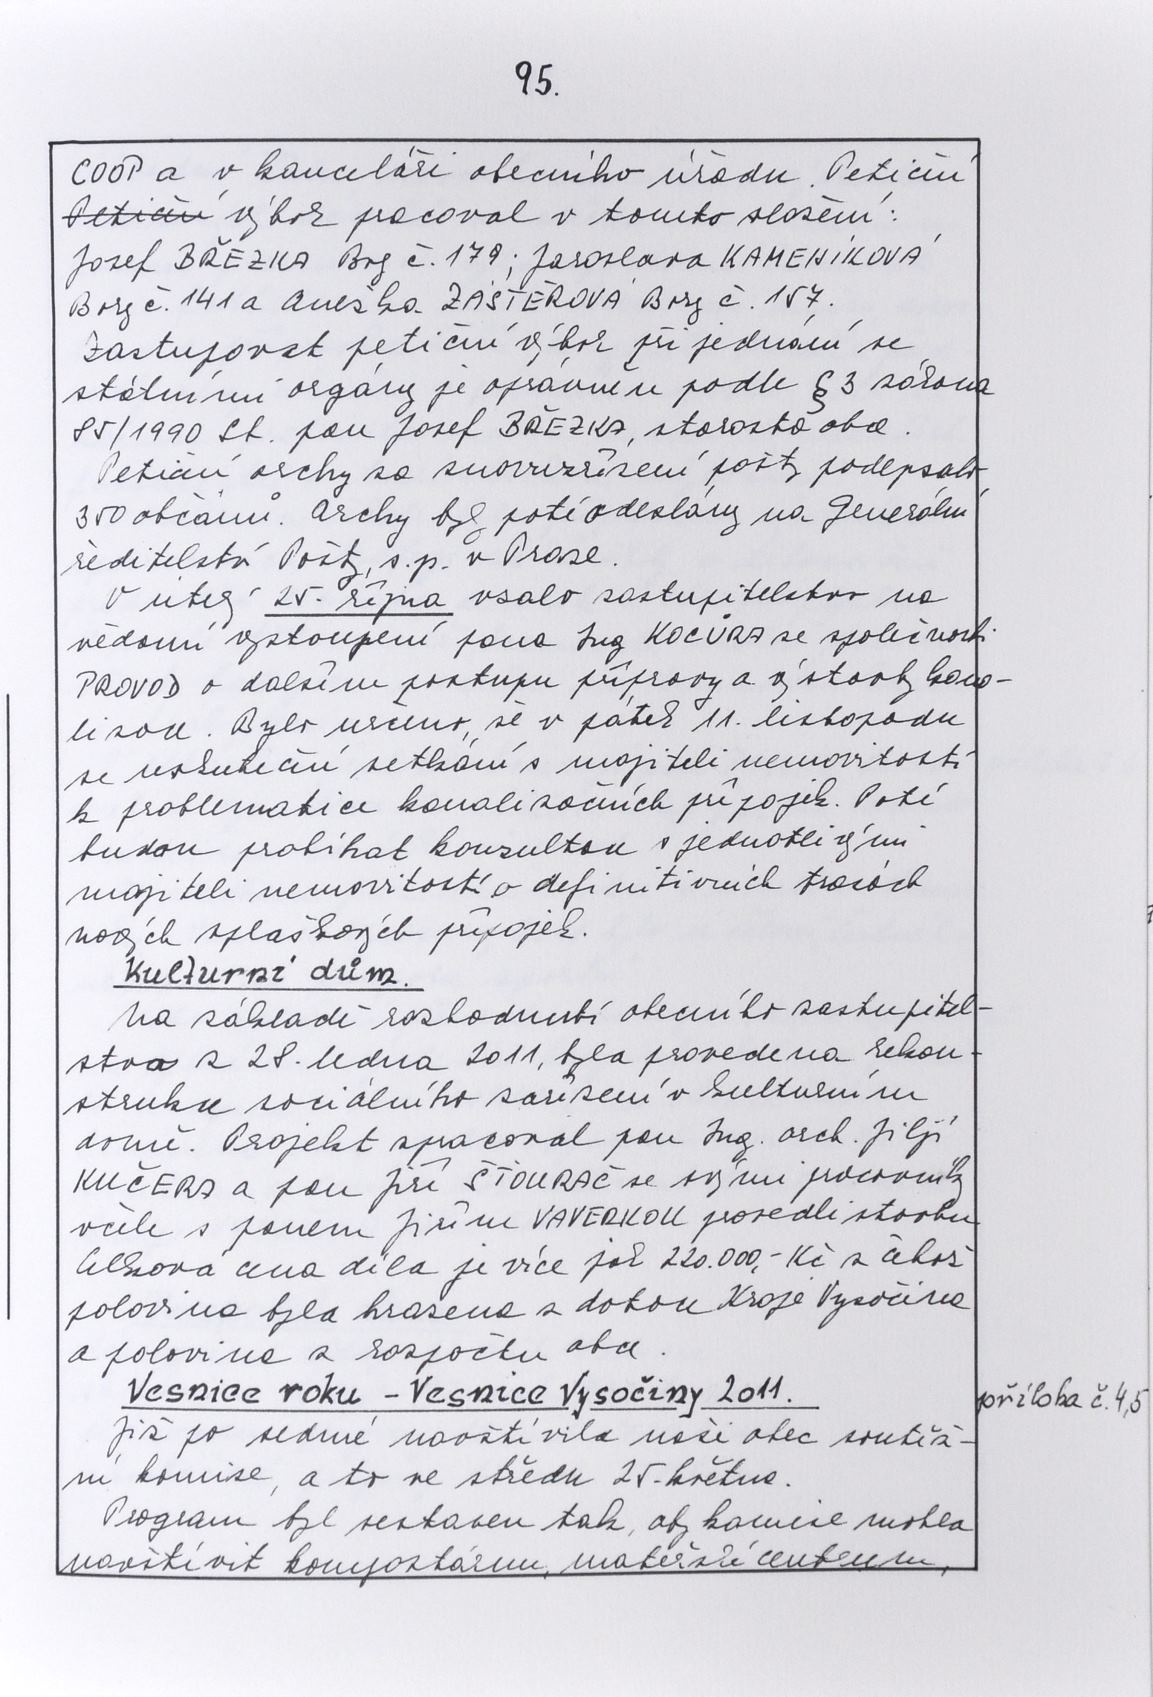 95.
COOP a v kanceláři obecního úřadu. Petiční
Petiční výbor pracoval v tomto složení:
Josef BŘEZKA Bory č. 179; Jaroslava KAMENÍKOVÁ
Bory č. 141 a Anežka ZÁŠTĚROVÁ Bory č. 157.
Zastupovat petiční výbor při jednání se
státními orgány je oprávněn podle § 3 zákona
85/1990 Sb. pan Josef BŘEZKA, starosta obce.
Petiční archy za znovuzřízení pošty podepsalo
350 občanů. Archy byly poté odeslány na Generální
ředitelství Pošty, s.p. v Praze.
V úterý 25. října vzalo zastupitelstvo na
vědomí vystoupení pana Ing KOCŮRA se společnosti
PROVOD o dalším postupu přípravy a výstavby kana-
lizace. Bylo určeno, že v pátek 11. listopadu
se uskuteční setkání s majiteli nemovitostí
k problematice kanalizačních přípojek. Poté
budou probíhat konzultace s jednotlivými
majiteli nemovitostí o definitivních trasách
nových splaškových přípojek.
Kulturní dům.
Na základě rozhodnutí obecního zastupitel-
stva z 28. ledna 2011, byla provedena rekon-
strukce sociálního zařízení v kulturním
domě. Projekt zpracoval pan Ing. arch. Jiljí
KUČERA a pan Jiří ŠTOURAČ se svými pracovníky
včele s panem Jiřím VAVERKOU provedli stavbu
Celková cena díla je více jak 220.000,- Kč z čehož
polovina byla hrazena z dotace Kraje Vysočina
a polovina z rozpočtu obce.
Vesnice roku - Vesnice Vysočiny 2011.
příloha č. 4,5
Již po sedmé navštívila naši obec soutěž-
ní komise, a to ve středu 25. května.
Program byl sestaven tak, aby komise mohla
navštívit kompostárnu, mateřské centrum,